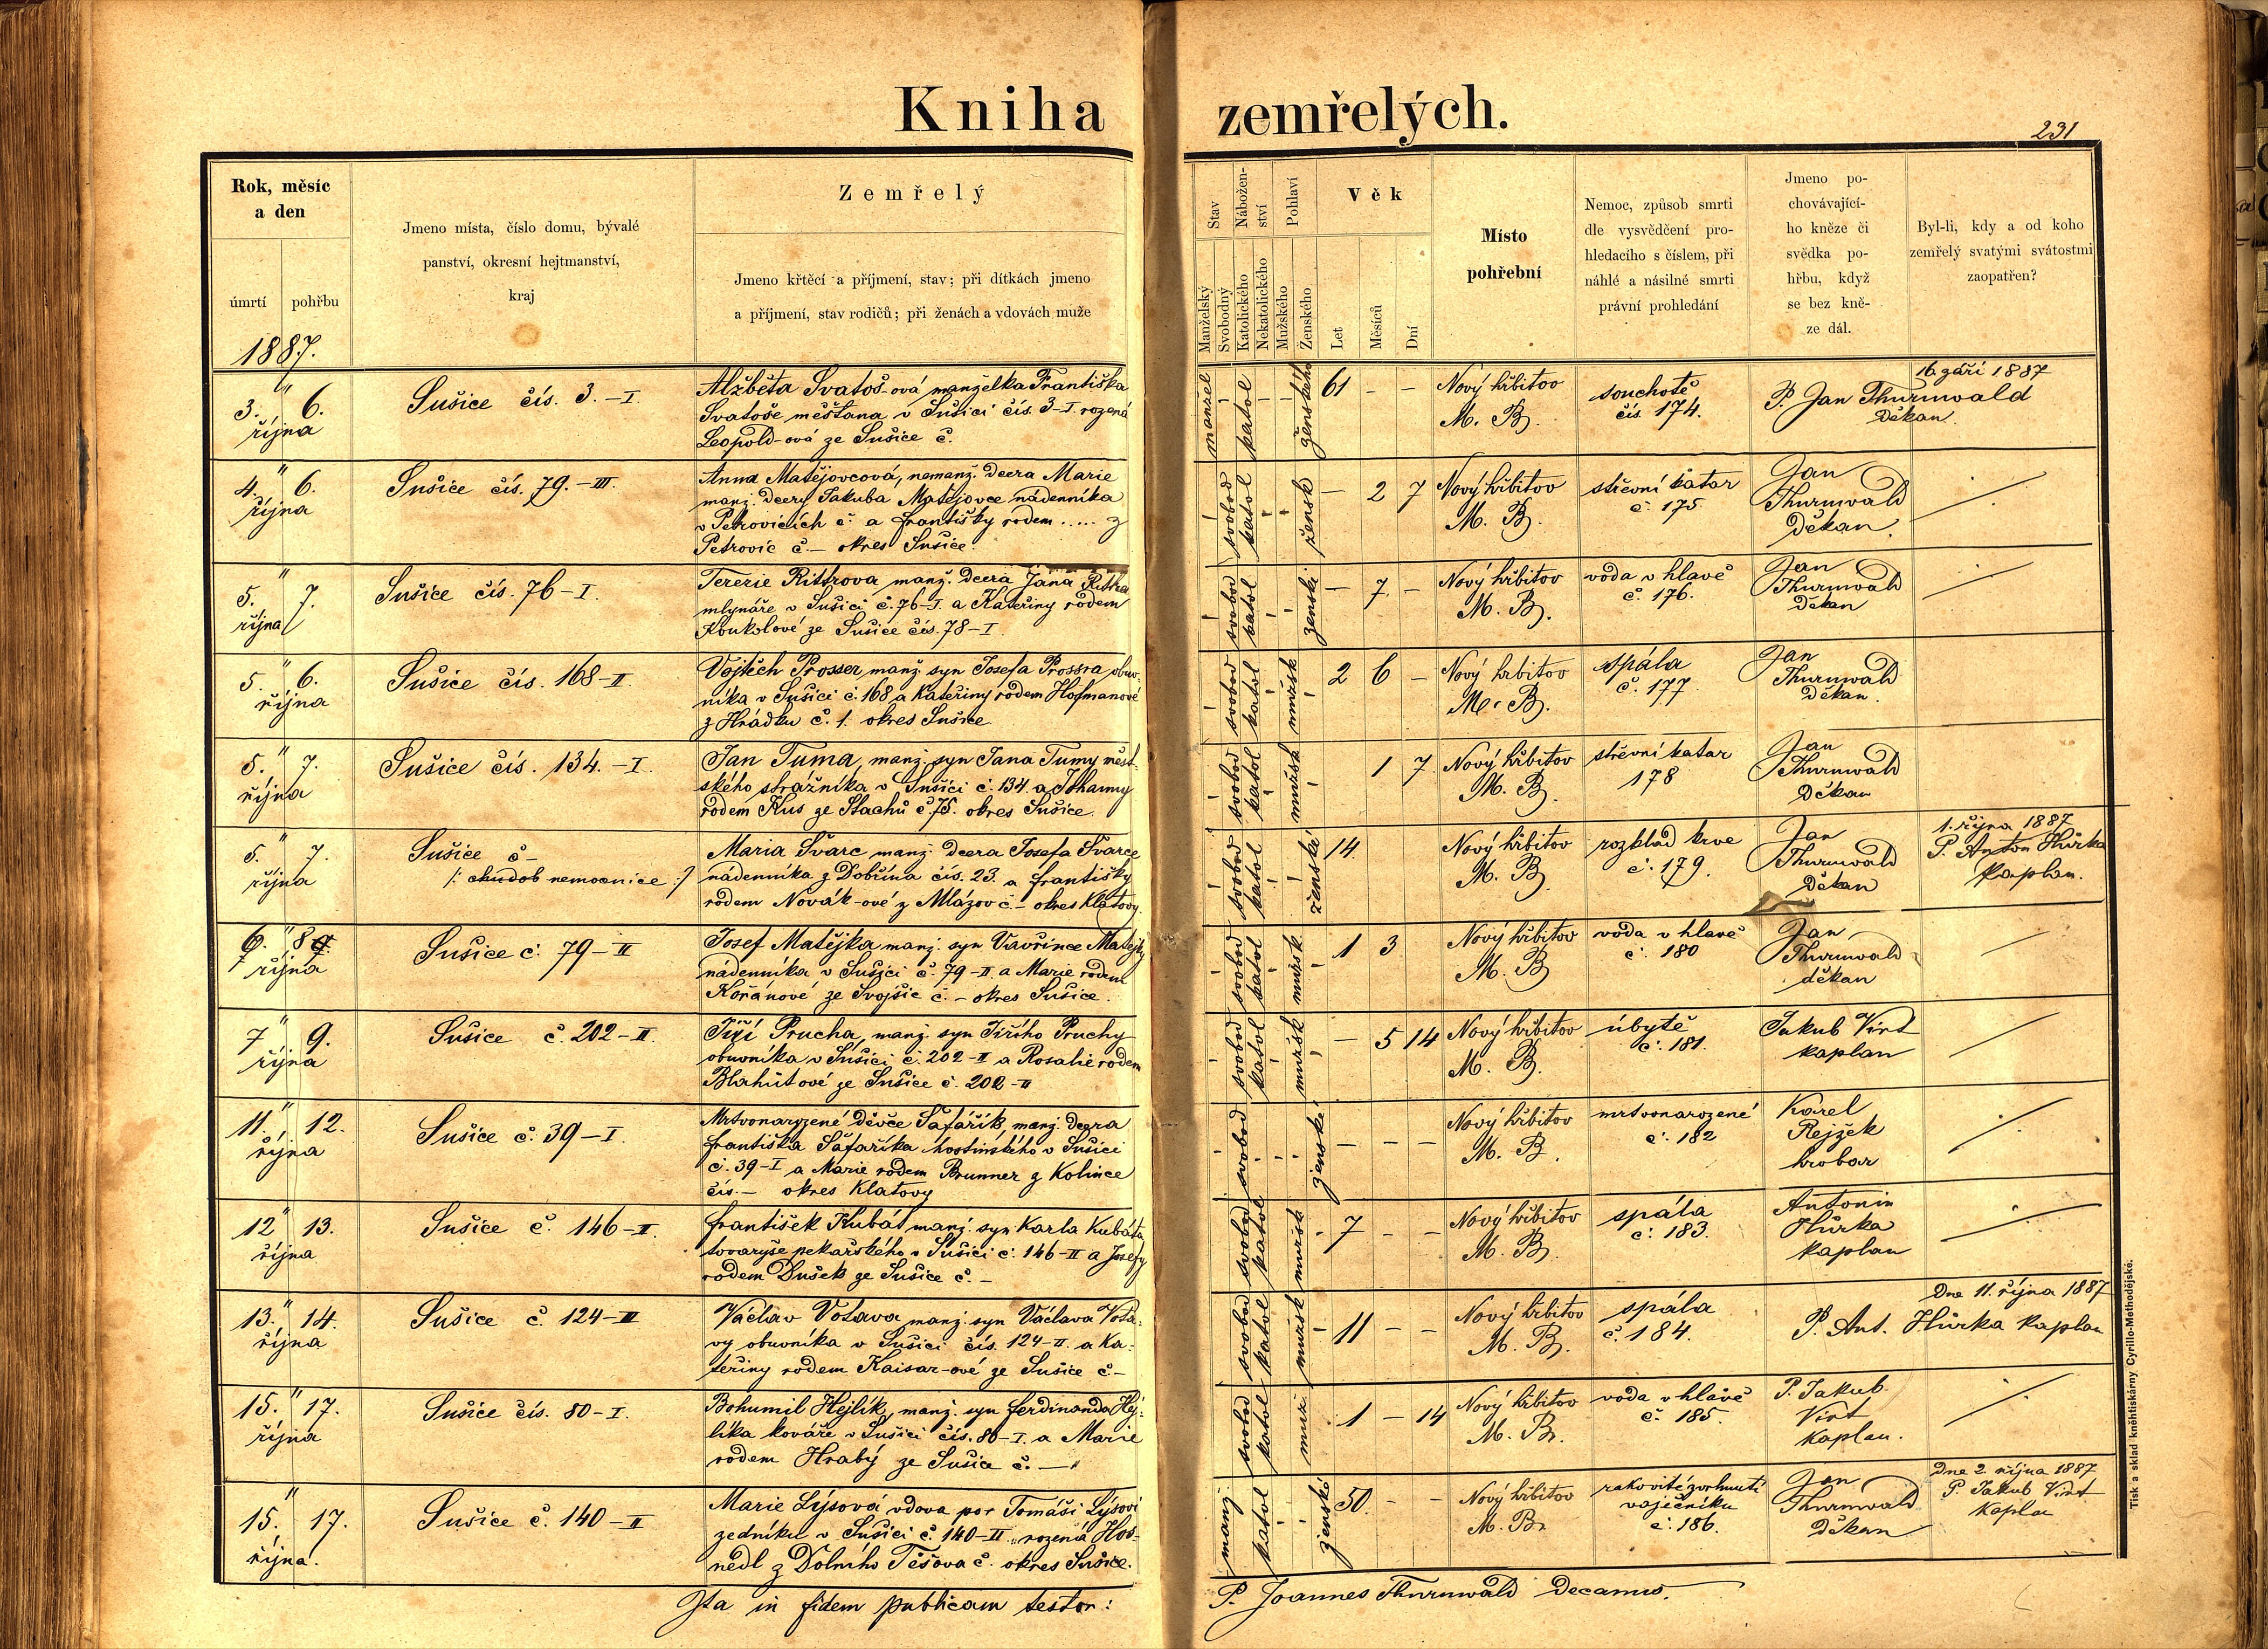 Kniha zemřelých.
231
Rok, měsíc
a den
úmrtí pohřbu
1887.
Jmeno místa, číslo domu, bývalé
panství, okresní hejtmanství,
kraj
Zemřelý
Jmeno křtěcí a příjmení, stav; při dítkách jmeno
a příjmení, stav rodičů; při ženách a vdovách muže
Stav
Manželský
Svobodný
Nábožen-
ství
Katolického
Nekatolického
Pohlaví
Mužského
Ženského
Věk
Let
Měsíců
Dní
Místo
pohřební
Nemoc, způsob smrti
dle vysvědčení pro-
hledacího s číslem, při
náhlé a násilné smrti
právní prohledání
Jmeno po-
chovávající-
ho kněze či
svědka po-
hřbu, když
se bez kně-
ze dál.
Byl-li, kdy a od koho
zemřelý svatými svátostmi
zaopatřen?
3. " 6.
října
Sušice čís. 3.-I.
Alžběta Svatoš-ová manželka Františka
Svatoše měšťana v Sušici čís. 3-I. rozená
Leopold-ová ze Sušice č.
manžel katol ženského 61 - -
Nový hřbitov
M. B.
souchotě
čís. 174.
16. září 1887
P. Jan Thurnwald
Děkan.
4. " 6.
října
Sušice čís. 79.-III.
Anna Matějovcová, nemanž. dcera Marie
manž. dcery Jakuba Matějovce nádenníka
v Petrovicích č. a Františky rodem ..... z
Petrovic č. – okres Sušice.
svobod katol žensk - 2 7
Nový hřbitov
M. B.
střevní katar
č. 175.
Jan
Thurnwald
Děkan.
5. " 7.
října
Sušice čís. 76-I.
Terezie Rittrova, manž. dcera Jana Rittra
mlynáře v Sušici č. 76-I. a Kateřiny rodem
Koukolové ze Sušice čís. 78-I.
svobod katol ženské - 7. -
Nový hřbitov
M. B.
voda v hlavě
č. 176.
Jan
Thurnwald
Děkan
5. " 6.
října
Sušice čís. 168-II.
Vojtěch Prosser, manž. syn Josefa Prossra obuv-
níka v Sušici č. 168 a Kateřiny rodem Hofmanové
z Hrádku č. 1. okres Sušice.
svobod katol mužsk 2 6 -
Nový hřbitov
M. B.
spála
č. 177
Jan
Thurnwald
Děkan.
5. " 7.
října
Sušice čís. 134.-I.
Jan Tuma, manž. syn Jana Tumy měst-
ského strážníka v Sušici č. 134. a Johanny
rodem Kus ze Stachů č. 75. okres Sušice.
svobod katol mužsk 1 7
Nový hřbitov
M. B.
střevní katar
178
Jan
Thurnwald
Děkan
5. " 7.
října
Sušice č –
/: chudob nemocnice :/
Maria Švarc manž. dcera Josefa Švarce
nádenníka z Dobřína čís. 23. a Františky
rodem Novák-ové z Mlázov č. – okres Klatovy.
svobod katol ženské 14.
Nový hřbitov
M. B.
rozklad krve
č. 179.
Jan
Thurnwald
Děkan
1. října 1887
P. Anton Hůrka
Kaplan.
6. " 8
října
Sušice č. 79-II
Josef Matějka manž. syn Vavřince Matějky
nádenníka v Sušici č. 79-II. a Marie rodem
Kořánové ze Svojšic č. – okres Sušice.
svobod katol mužsk 1 3
Nový hřbitov
M. B.
voda v hlavě
č. 180
Jan
Thurnwald
děkan
7 " 9.
října
Sušice č. 202-II.
Jiří Prucha, manž. syn Jiřího Pruchy
obuvníka v Sušici č. 202-II a Rosalie rodem
Blahůtové ze Sušice č. 202-II
svobod katol mužsk - 5 14
Nový hřbitov
M. B.
úbytě
č. 181.
Jakub Virt
kaplan
11. " 12.
října
Sušice č. 39-I.
Mrtvonarozené děvče Šafářík, manž. dcera
Františka Šafaříka hostinského v Sušici
č. 39-I a Marie rodem Brunner z Kolince
čís. – okres Klatovy
svobod ženské - - -
Nový hřbitov
M. B.
mrtvonarozené
č. 182
Karel
Rejžek
hrobar
12 " 13.
října
Sušice č. 146-II.
František Kubát manž. syn Karla Kubáta
tovaryše pekařského v Sušici č. 146-II a Josefy
rodem Dušek ze Sušice č. –
svobod katol mužsk 7 - -
Nový hřbitov
M. B.
spála
č. 183.
Antonin
Hůrka
kaplan
13. " 14.
října
Sušice č. 124-III
Václav Votava manž. syn Václava Vota-
vy obuvníka v Sušici čís. 124-II. a Ka-
teřiny rodem Kaisar-ové ze Sušice č –
svobod katol mužsk 11 - -
Nový hřbitov
M. B.
spála
č. 184.
Dne 11. října 1887
P. Ant. Hůrka Kaplan
15. " 17.
října
Sušice čís. 80-I.
Bohumil Hejlík, manž. syn Ferdinanda Hej-
líka kováře v Sušici čís. 80-I. a Marie
rodem Hrabý ze Sušice č. –
svobod katol muž 1 - 14
Nový hřbitov
M. B.
voda v hlavě
č. 185.
P. Jakub
Virt
Kaplan.
15. " 17.
října.
Sušice č. 140-II
Marie Lýsová vdova po Tomáši Lýsovi
zedníku v Sušici č. 140-II. rozená Hos-
nedl z Dolního Těšova č. okres Sušice.
manž katol ženské 50. - -
Nový hřbitov
M. B.
rakovité zvrhnutí
vaječníku
č. 186.
Jan
Thurnwald
Děkan
Dne 2. října 1887
P. Jakub Virt
Kapla
Ita in fidem publicam testor:
P. Joannes Thurnwald Decanus.
Tisk a sklad knihtiskárny Cyrillo-Methodějské.